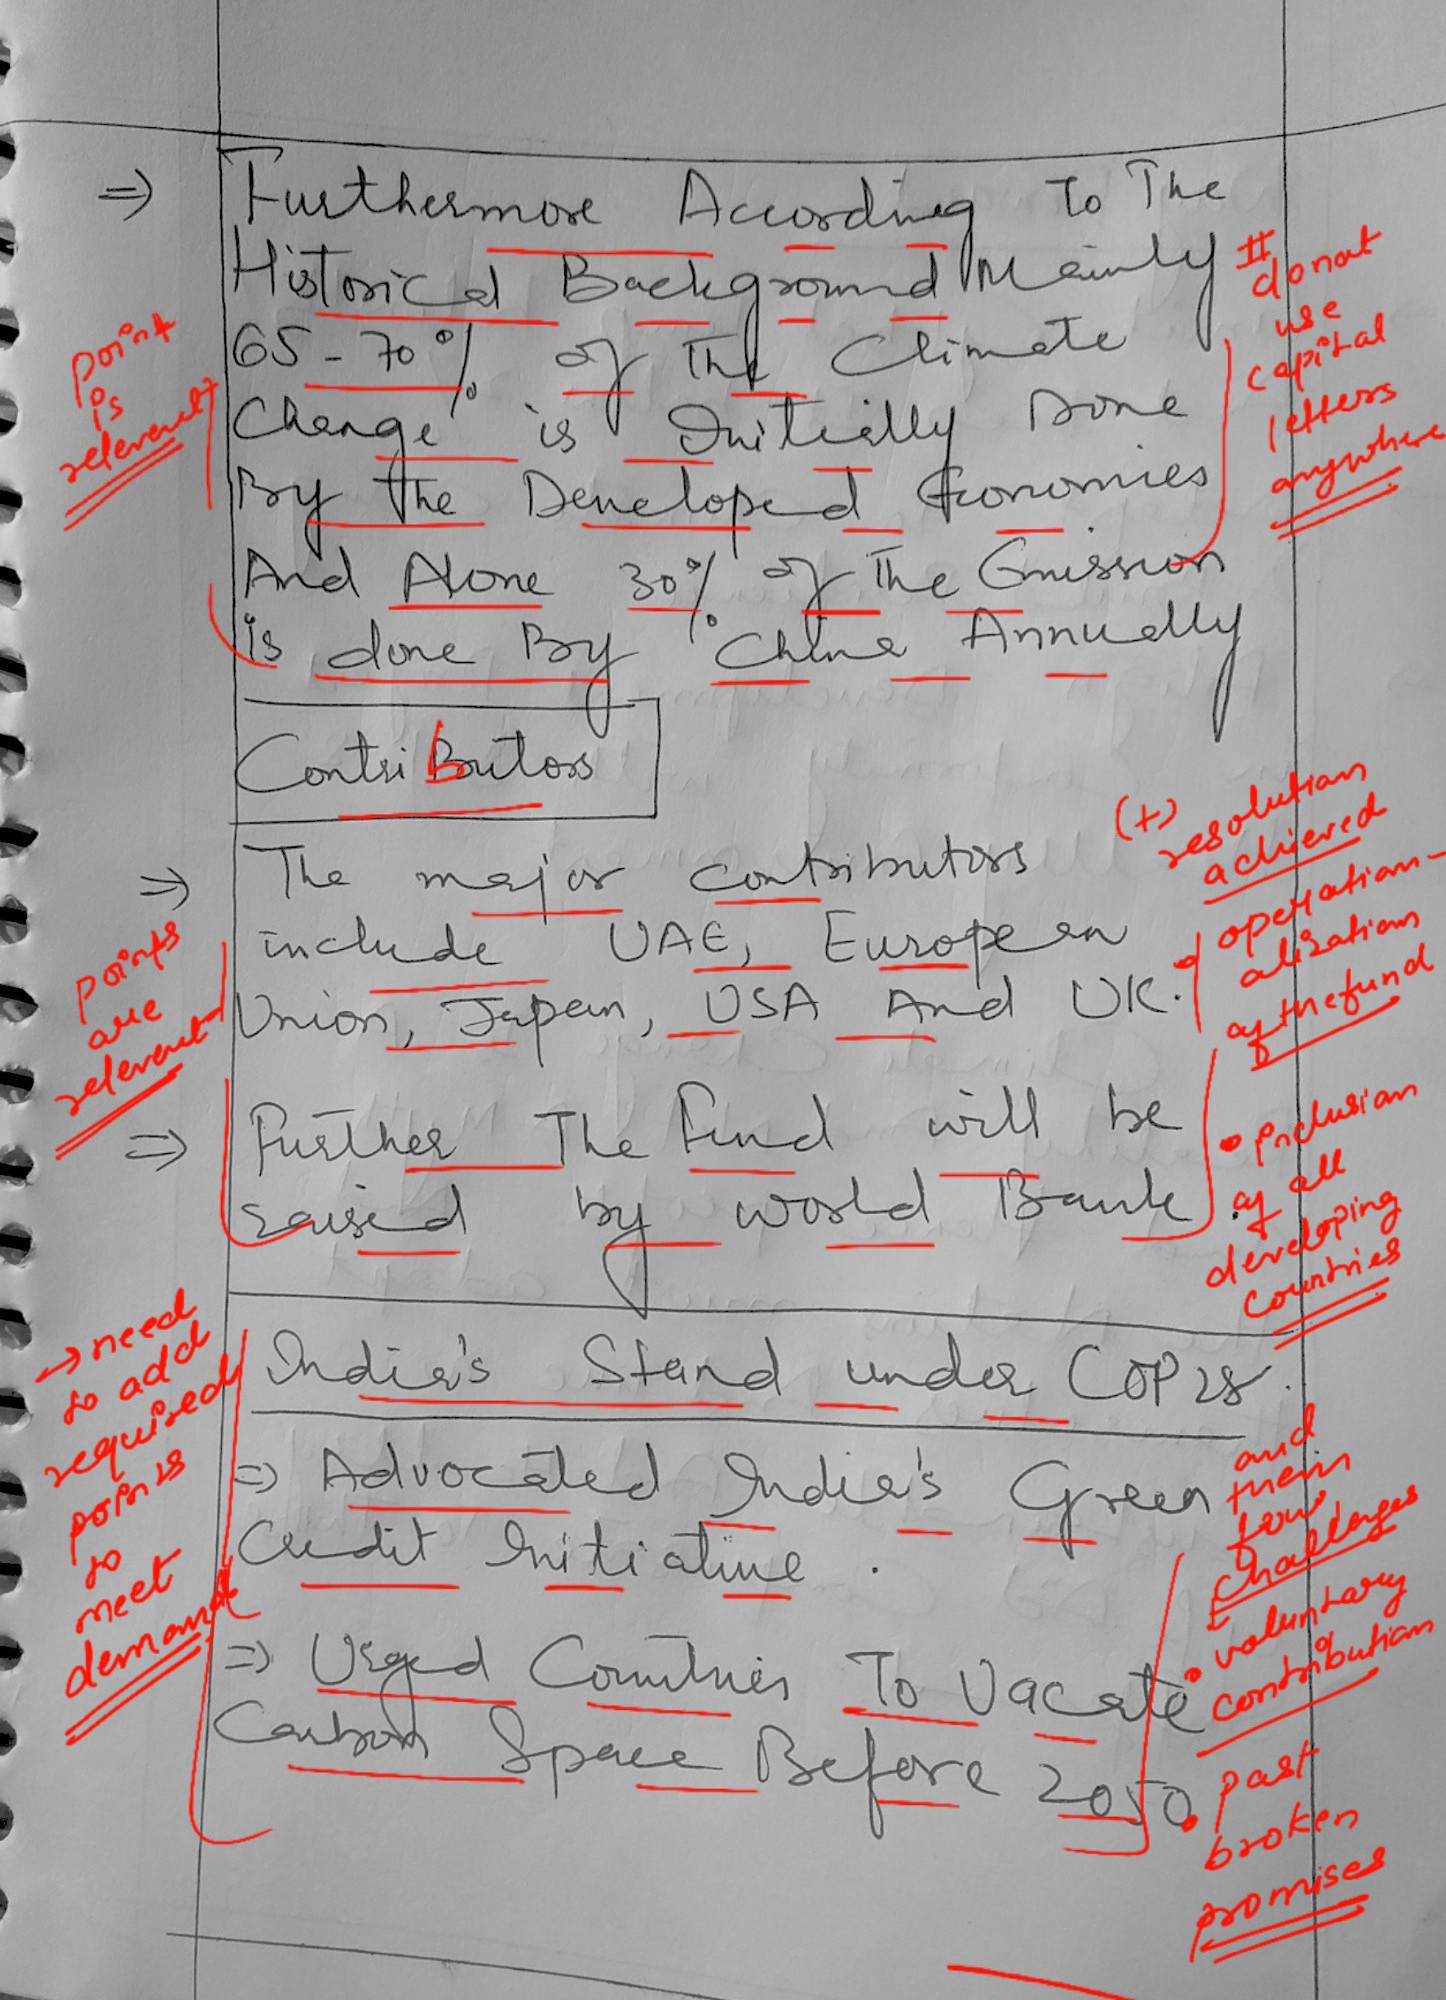 ⇒ Furthermore According To The
Historical Background Mainly
65-70% of The Climate
Change is Initially Done
By the Developed Economies
And Alone 30% of The Emission
is done By China Annually
point
is
relevant
#
donot
use
capital
letters
anywhere
ContriButors
b
⇒ The major contributors
include UAE, European
Union, Japan, USA And UK.
⇒ Further The Fund will be
raised by world Bank.
points
are
relevant
(+)
resolution
achieved
• operation-
alisation
of the fund
• inclusion
of all
developing
countries
India's Stand under COP28.
⇒ Advocated India's Green
Credit Initiative.
⇒ Urged Countries To Vacate
Carbon Space Before 2050
→ need
to add
required
points
to
meet
demand
and
then
few
challenges
• voluntary
contribution
• past
broken
promises